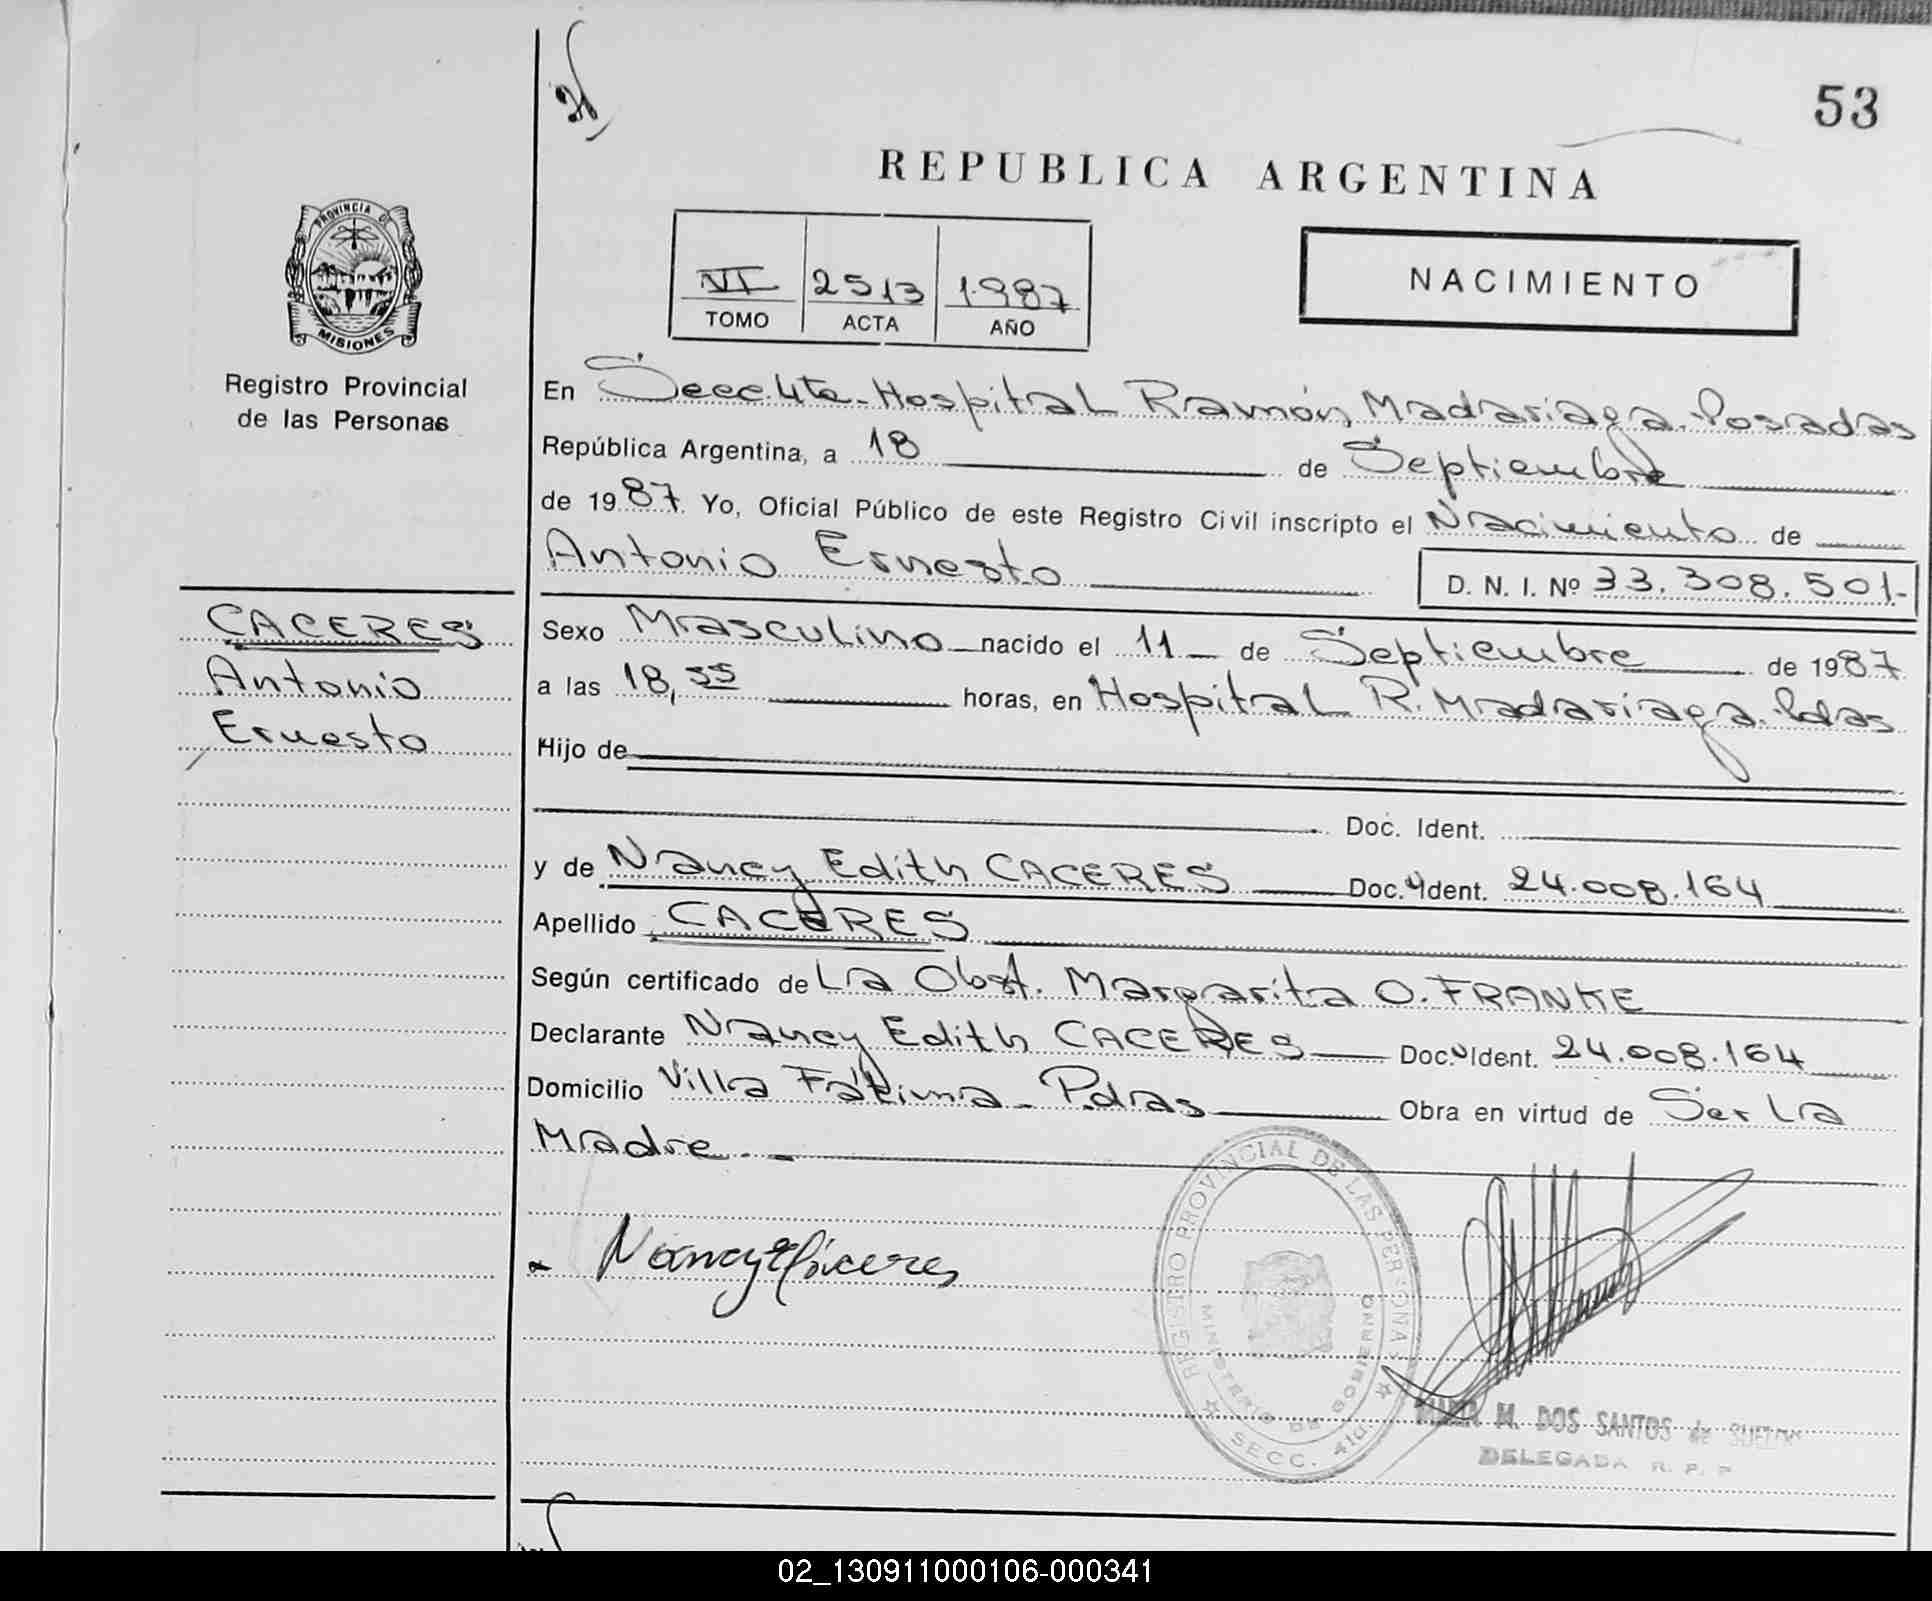 53
REPUBLICA ARGENTINA
PROVINCIA DE
MISIONES
Registro Provincial
de las Personas
VI 2513 1987
TOMO ACTA AÑO
NACIMIENTO
En Secc. 4ta. Hospital Ramón Madariaga. Posadas
República Argentina, a 18 de Septiembre
de 1987. Yo, Oficial Público de este Registro Civil inscripto el Nacimiento de
Antonio Ernesto D. N. I. Nº 33.308.501.-
CACERES
Antonio
Ernesto
Sexo Masculino nacido el 11 de Septiembre de 1987
a las 18,55 horas, en Hospital R. Madariaga. Pdas
Hijo de
Doc. Ident.
y de Nancy Edith CACERES Doc. Ident. 24.008.164
Apellido CACERES
Según certificado de La Obst. Margarita O. FRANKE
Declarante Nancy Edith CACERES Doc. Ident. 24.008.164
Domicilio Villa Fátima - Pdas Obra en virtud de Ser La
Madre.-
Nancy E Cáceres
REGISTRO PROVINCIAL DE LAS PERSONAS
MINISTERIO DE GOBIERNO
SECC. 4ta.
M. DOS SANTOS de
DELEGADA R. P. P
02_130911000106-000341